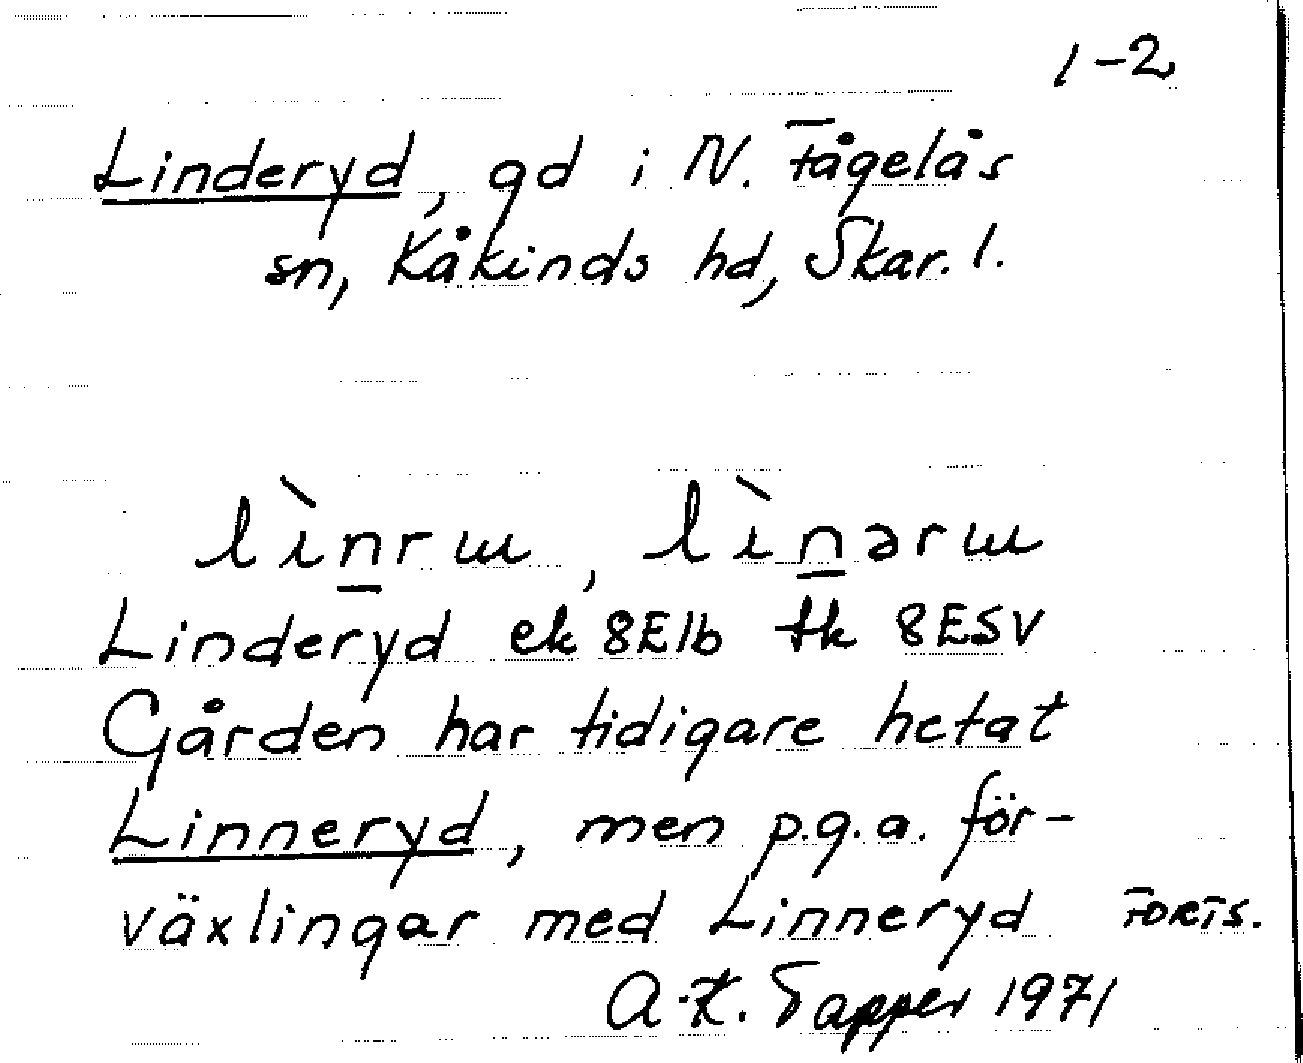 1-2
Linderyd, gd i N. Fågelås
sn, Kåkinds hd, Skar. l.
lìn̲rɯ, lìn̲ərɯ
Linderyd ek 8E1b tk 8E5V
Gården har tidigare hetat
Linneryd, men p.g.a. för-
växlingar med Linneryd FORTS.
A-K. Tapper 1971